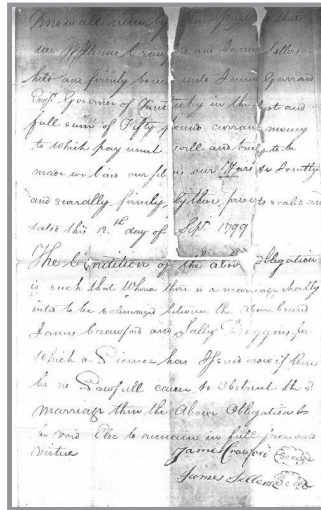 Know all men by these presents that
we James Crawford and James Sellers
held and firmly bound unto James Garrard
Esqr. Governor of Kentucky in the just and
full sum of Fifty pounds current money
to which payment well and truly to be
made we bind our selves our Heirs &c Jointly
and severally firmly by these presents sealed and
dated this 12th day of Sept. 1799
The Condition of the above Obligation
is such that Whereas there is a marriage shortly
into to be solemnized between the above bound
James Crawford and Sally Diggins, for
Which a Licence has Issued now if there
be no Lawfull cause to Obstruct the Sd
marriage then the Above Obligation to
be void Else to remain in full force and
virtue James Crawford Seal
James Sellers Seal